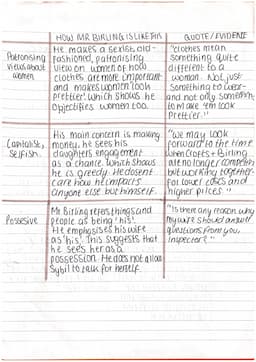 HOW MR BIRLING IS LIKE THIS
QUOTE / EVIDENCE
Patronising
views about
women
He makes a sexist, old-
fashioned, patronising
view on women of how
clothes are more important
and makes women look
prettier which shows he
objectifies women too.
"clothes mean
something quite
different to a
woman. Not just
something to wear -
and not only something
to make 'em look
prettier."
Capitalist,
selfish.
His main concern is making
money, he sees his
daughters engagement
as a chance. Which shows
he is greedy. He dosent
care how he impacts
anyone else but himself.
"We may look
forward to the time
when Crofts + Birling
are no longer competing
but working together-
for lower costs and
higher prices."
Possesive
Mr Birling refers things and
people as being 'his'.
He emphasises his wife
as 'his'. This suggests that
he sees her as a
possession. He does not allow
Sybil to talk for herself.
"Is there any reason why
my wife should answer
questions from you,
Inspector?"